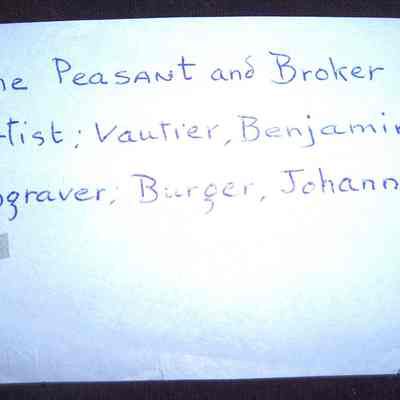 he Peasant and Broker
tist; Vautier, Benjamin
ngraver; Burger, Johann